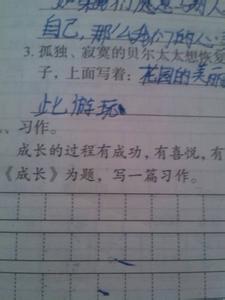 自己,那么我们的人
3.孤独、寂寞的贝尔太太想恢复
子,上面写着:花园的美丽
此游玩
、习作。
成长的过程有成功,有喜悦,有
《成长》为题,写一篇习作。